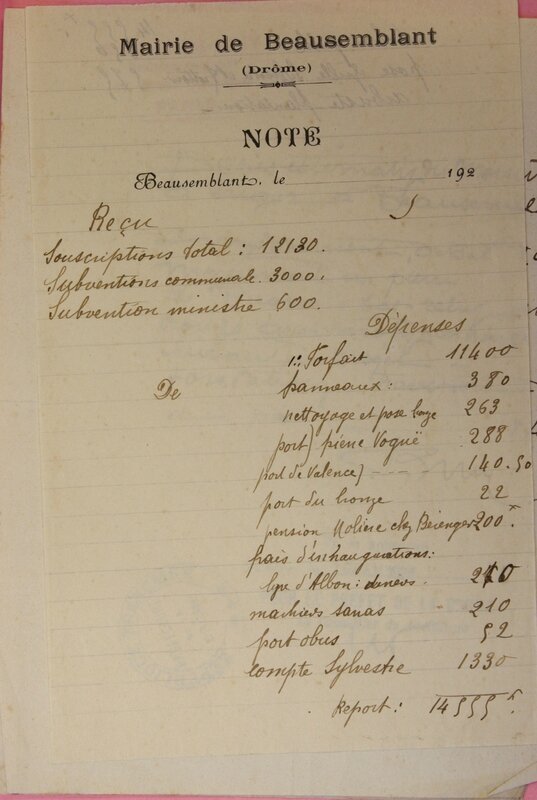 Mairie de Beausemblant
(Drôme)
NOTE
Beausemblant, le 192
Reçu
Souscriptions total : 12130.
Subventions communale. 3000.
Subvention ministre 600.
Dépenses
1º: Forfait 11400
De panneaux : 380
nettoyage et pose bronze 263
port) pierre Voguë 288
port de Valence) - - - - 140.50
port du bronze 22
pension Moliere chez Bérenger 200 f.
frais d'inaugurations:
lyre d'Albon : diners . 210
machiers sanas 210
port obus 52
compte Sylvestre 1330
Report : 14555 f.